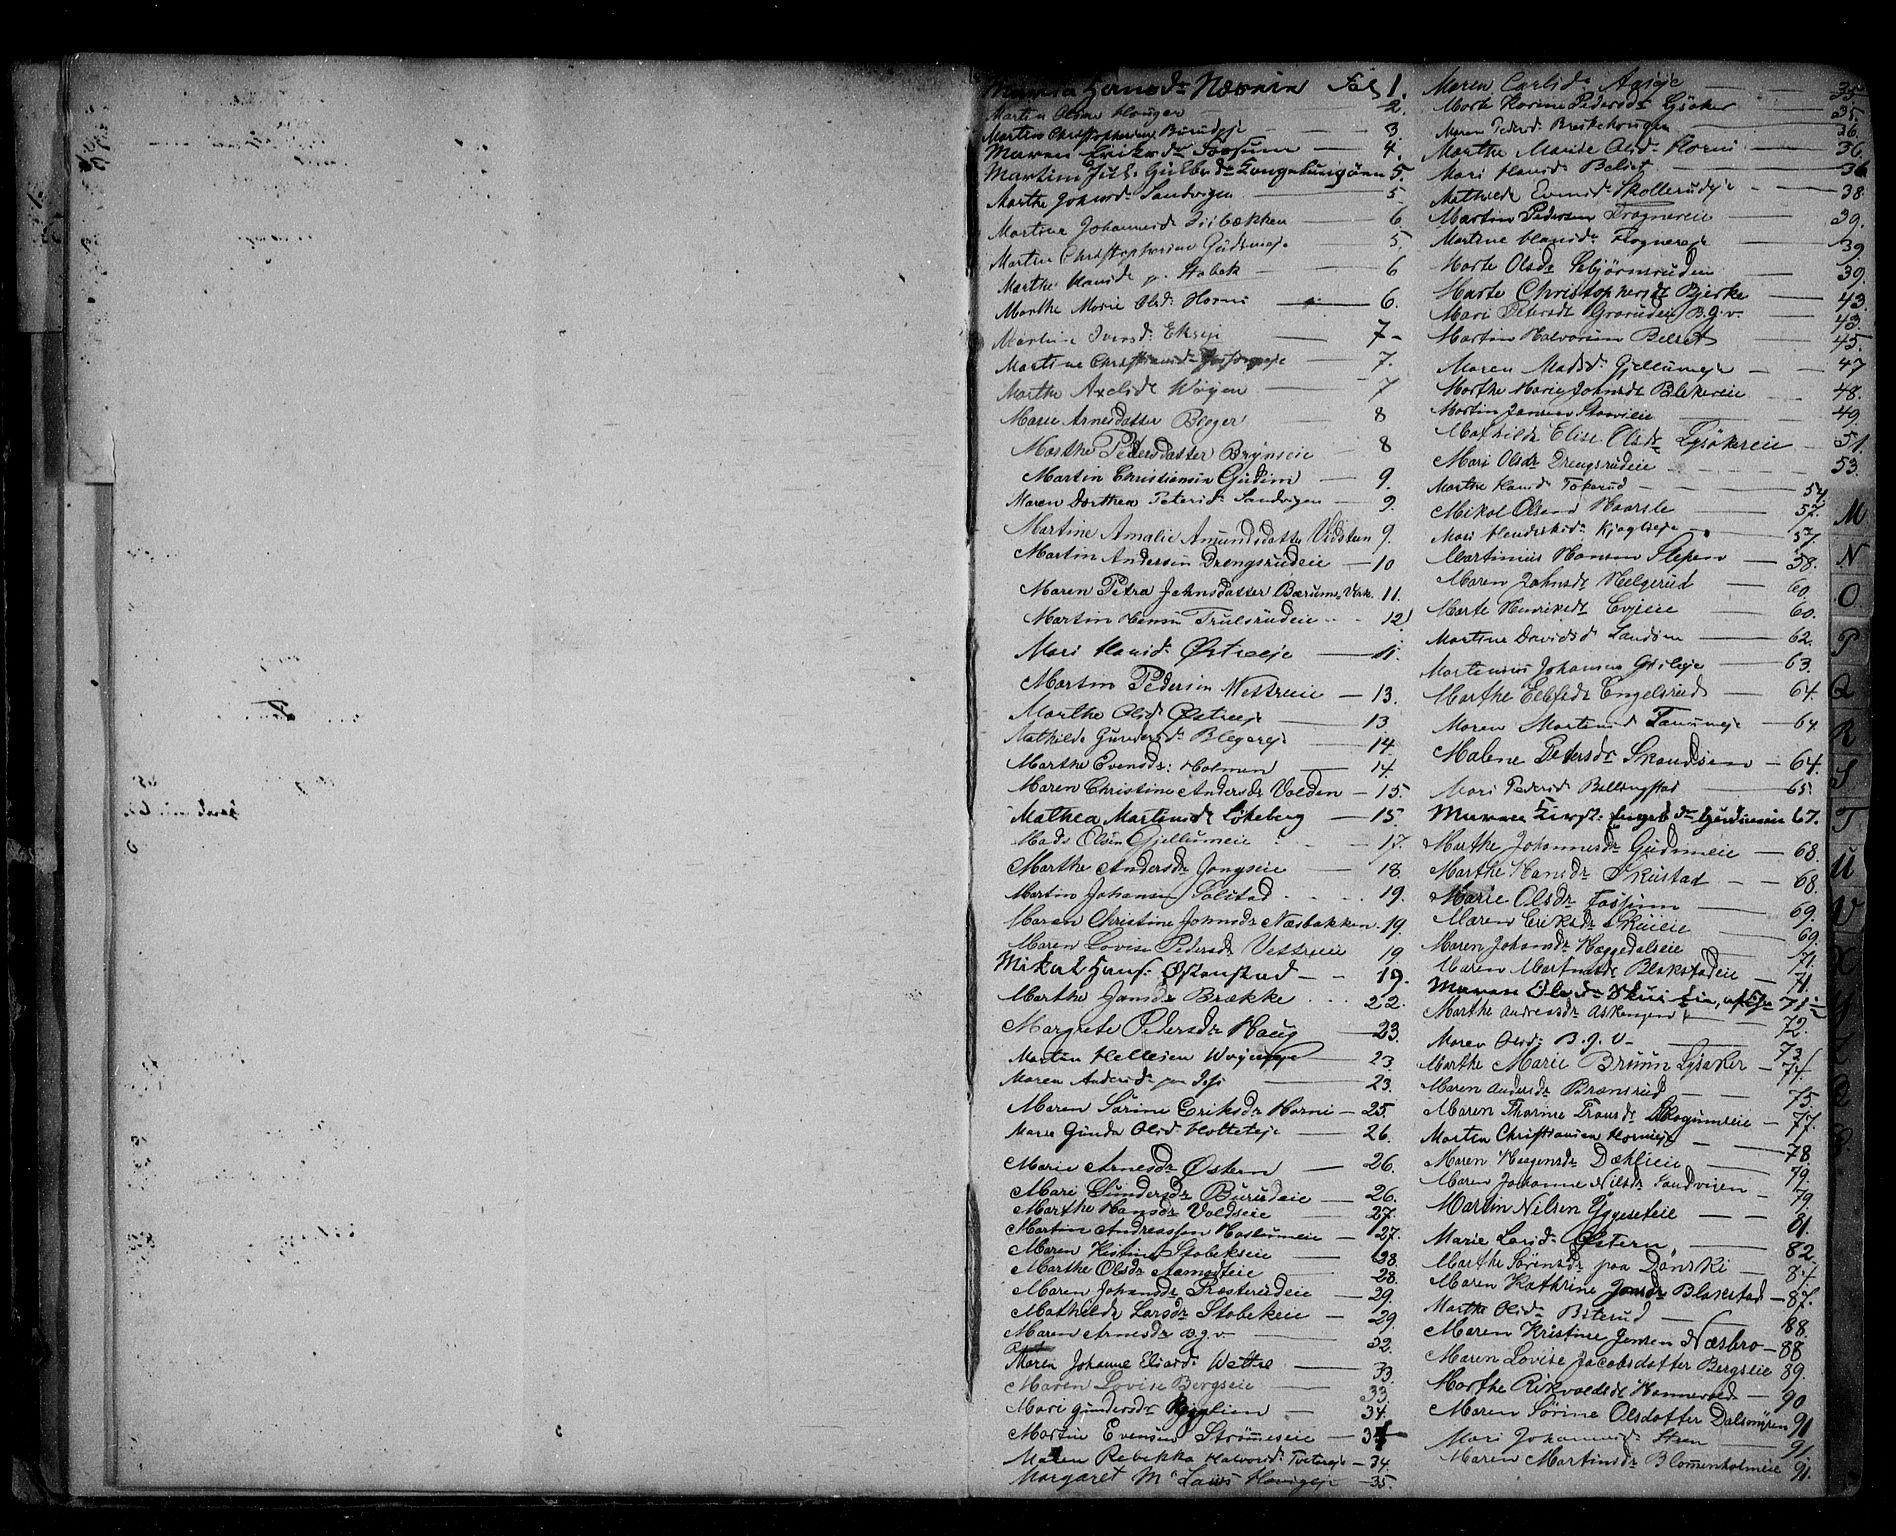 Maren Hansdr Næsnin Fol 1.
Martin Olsen Houger 2.
Martin Christophersen Burudeje 3.
Maren Eriksdr Fossum 4.
Martine Jul. Gulbrdr 5.
Marthe Johnsdr Sandvigen 5
Martine Johannesdr Isibækken 6
Martin Christophersen Gudimeje 5.
Marthe Hansdr p. Stabek 6
Marthe Marie Olsdr Horni 6.
Martine Iversdr Ekeje 7
Martine Christiansdr 7.
Marthe Axelsdr Wøyen 7
Marie Arnesdatter Bleger 8
Marthe Pedersdatter Brynseie 8
Martin Christiansen Gudim 9.
Maren Dorthea Petersdr Sandvigen 9.
Martine Amalie Amundsdatter Vidsten 9.
Martin Andersen Drengsrudeie 10
Maren Petra Johnsdatter Bærums Verk. 11.
Martin Hansen Trulsrudeie 12
Mari Hansdr Østreeje 11.
Martin Pedersen Vestreeie 13.
Marthe Olsdr Østreeje 13
Mathilde Gundersdr Blegereje 14
Marthe Evensdr Holmen 14.
Maren Christine Andersdr Volden 15.
Mathea Martinsdr Løkeberg 15.
Mads Olsen Gjellumeie 17.
Marthe Andersdr Jongseie 18
Martin Johansen Solstad 19.
Maren Christine Johnsdr Næsbakken 19.
Maren Lovise Pedersdr Vestreeie 19
Mikal Hans. Østenstad 19.
Marthe Jansdr Brække 22.
Margrete Pedersdr Haug 23.
Martin Hellesen Wøyeneje 23.
Maren Andersdr 23.
Maren Sørine Eriksdr Horni 25.
Maren Gunda Olsdr Holteteje 26.
Marie Arnesdr Østern 26.
Mari Gundersdr Burudeie 26.
Marthe Hansdr Voldseie 27.
Martin Andreassen Haslumeie 27.
Maren Kistine Stabekseie 28.
Marthe Olsdr Aamodteie 28.
Maren Johansdr Prosterudeie 29.
Mathilde Larsdr Stabekeie 29
Maren Arnesdr B.g.v. 32.
Maren Johanne Eliasdr Wettre 33.
Maren Lovise Bergseie 33.
Mari Gundersdr 34.
Martin Evensen Strømseie 34
Maren Rebekka Halvorsdr Tveterseje 34
Margaret Mc Laws Honigeje 35.
Maren Carlsdr Aaseje 35
Marte Karine Pedersdr Gjøker 35.
Maren Pedersdr Breskehougen 36.
Marthe Marie Olsdr Horni 36.
Mari Hansdr Belset 36
Mathilde Evensdr Skollerudeje 38.
Martin Pedersen Frognereie 39.
Martine Hansdr Frognereje 39
Marte Olsdr Esbjørnsruden 39.
Marte Christophersdr Bjerke 43.
Mari Petersdr Grorudeie B.g.v. 43.
Martin Halvorsen Belset 45.
Maren Madsdr Gjellumeje 47
Marthe Marie Johnsdr Blekereie 48.
Martin Jansen Staverseie 49.
Mathilde Elise Olsdr Lysakereie 51.
Mari Olsdr Drengsrudeie 53.
Marthe Hansdr Tokerud 54.
Mikal Olsen Haarsle 57.
Mari Hendriksdr Kjaglieje 57.
Martinius Hansen Slepen 58.
Maren Johnsdr Helgerud 60.
Marte Henriksdr Evjeie 60.
Martine Davidsd Sandsen 62.
Martinius Johansen Gisleje 63.
Marthe Ellefsdr Engelsrud 64
Maren Martinsd Tanumeje 64.
Malene Pedersdr Skandsen 64.
Mari Pedersd Billingstad 65.
Maren Kirst. Engeb.dr Gudimeie 67.
Marthe Johannesdr Gudimeie 68.
Marthe Hansdr Skustad 68.
Marie Olsdr Fossum 69.
Maren Eriksdr Skuieie 69.
Maren Johansdr Hæggedalseie 71.
Maren Martinsdr Blakstadeie 71.
Maren Olsdr Skui 71½
Marthe Andreasdr Askengen 72.
Maren Olsdr B.g.V. 73
Marthe Marie Bruun Lysaker 74.
Maren Andersdr Brænsrud 75.
Maren Thorine Fransdr Skogumeie 77.
Martin Christiansen Hornieje 78
Maren Haagensdr Dæhlieie 79.
Maren Johanne Nilsdr Sandvigen 79.
Martin Nilsen Yggeseteie 81.
Marie Larsdr Østern 82.
Marthe Sørensdr paa Dønski 84.
Maren Kathrine Jansdr Blakstad 87.
Marthe Olsdr Biterud 88.
Maren Kristine Jensen Næsbro 88
Maren Lovise Jacobsdatter Bergseie 89.
Marthe Rikvoldsdr Hammerbed 90
Maren Sørine Olsdatter Dalsmyren 91
Mari Johannesdr Steen 91.
Maren Martinsdr Blommenholmeie 91.
M
N
O
P
Q
R
S
T
U
V
X
Y
Z
Æ
Ø